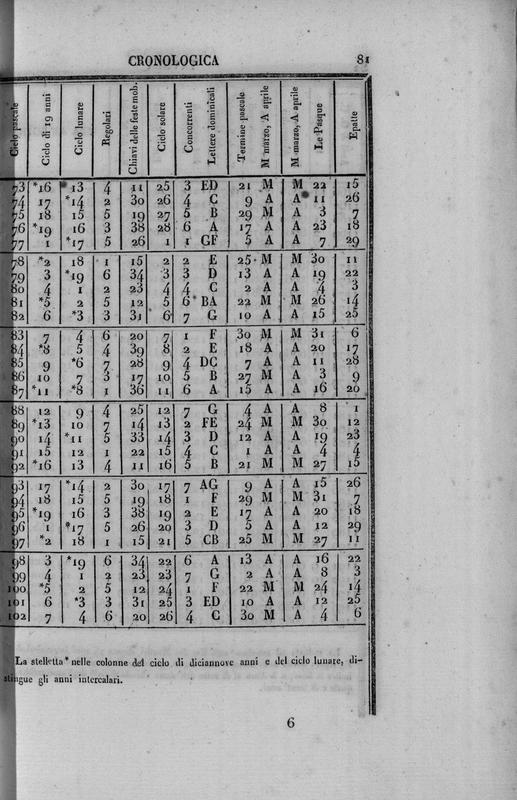 CRONOLOGICA 81
Ciclo pascale | Ciclo di 19 anni | Ciclo lunare | Regolari | Chiavi delle feste mob. | Ciclo solare | Concorrenti | Lettere dominicali | Termine pascale | M marzo, A aprile | M marzo, A aprile | Le Pasque | Epatte
73 *16 *13 4 11 25 3 ED 21 M M 22 15
74 17 *14 2 30 26 4 C 9 A A 11 26
75 18 15 5 19 27 5 B 29 M A 3 7
76 *19 16 3 38 28 6 A 17 A A 23 18
77 1 *17 5 26 1 1 GF 5 A A 7 29
78 *2 18 1 15 2 2 E 25 M M 30 11
79 3 *19 6 34 3 3 D 13 A A 19 22
80 4 1 2 23 4 4 C 2 A A 4 3
81 *5 2 5 12 5 6 BA 22 M M 26 14
82 6 *3 3 31 6 7 G 10 A A 15 25
83 7 4 6 20 7 1 F 30 M M 31 6
84 *8 5 4 39 8 2 E 18 A A 20 17
85 9 *6 7 28 9 4 DC 7 A A 11 28
86 10 7 3 17 10 5 B 27 M A 3 9
87 *11 *8 1 36 11 6 A 15 A A 16 20
88 12 9 4 25 12 7 G 4 A A 8 1
89 *13 10 7 14 13 2 FE 24 M M 30 12
90 14 *11 5 33 14 3 D 12 A A 19 23
91 15 12 1 22 15 4 C 1 A A 4 4
92 *16 13 4 11 16 5 B 21 M M 27 15
93 17 *14 2 30 17 7 AG 9 A A 15 26
94 18 15 5 19 18 1 F 29 M M 31 7
95 *19 16 3 38 19 2 E 17 A A 20 18
96 1 *17 5 26 20 3 D 5 A A 12 29
97 *2 18 1 15 21 5 CB 25 M M 27 11
98 3 *19 6 34 22 6 A 13 A A 16 22
99 4 1 2 23 23 7 G 2 A A 8 3
100 *5 2 5 12 24 1 F 22 M M 24 14
101 6 *3 3 31 25 3 ED 10 A A 12 25
102 7 4 6 20 26 4 C 30 M A 4 6
La stelletta * nelle colonne del ciclo di diciannove anni e del ciclo lunare, di-
stingue gli anni intercalari.
6